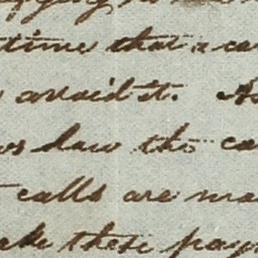 time that a ca
avoid it. As
law the ca
calls are ma
these pay